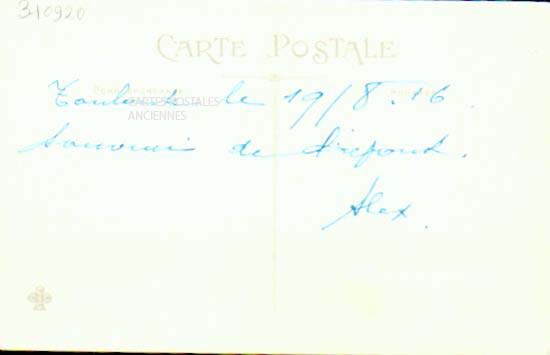 310920
CARTE POSTALE
CORRESPONDANCE
le 19/8.16
CARTES POSTALES
ANCIENNES
Souvenir de
Alex.